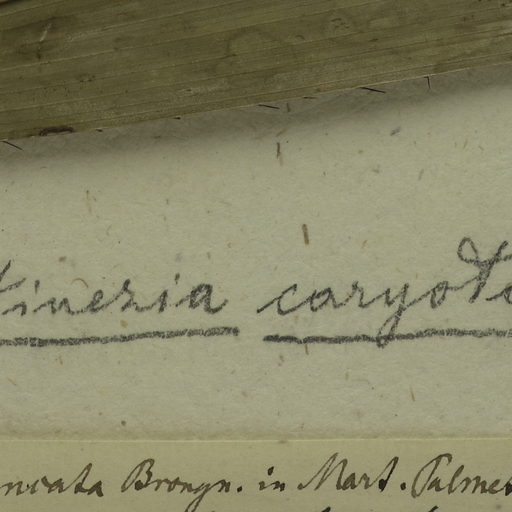 tinezia caryot
ncata Brongn. in Mart. Palmet